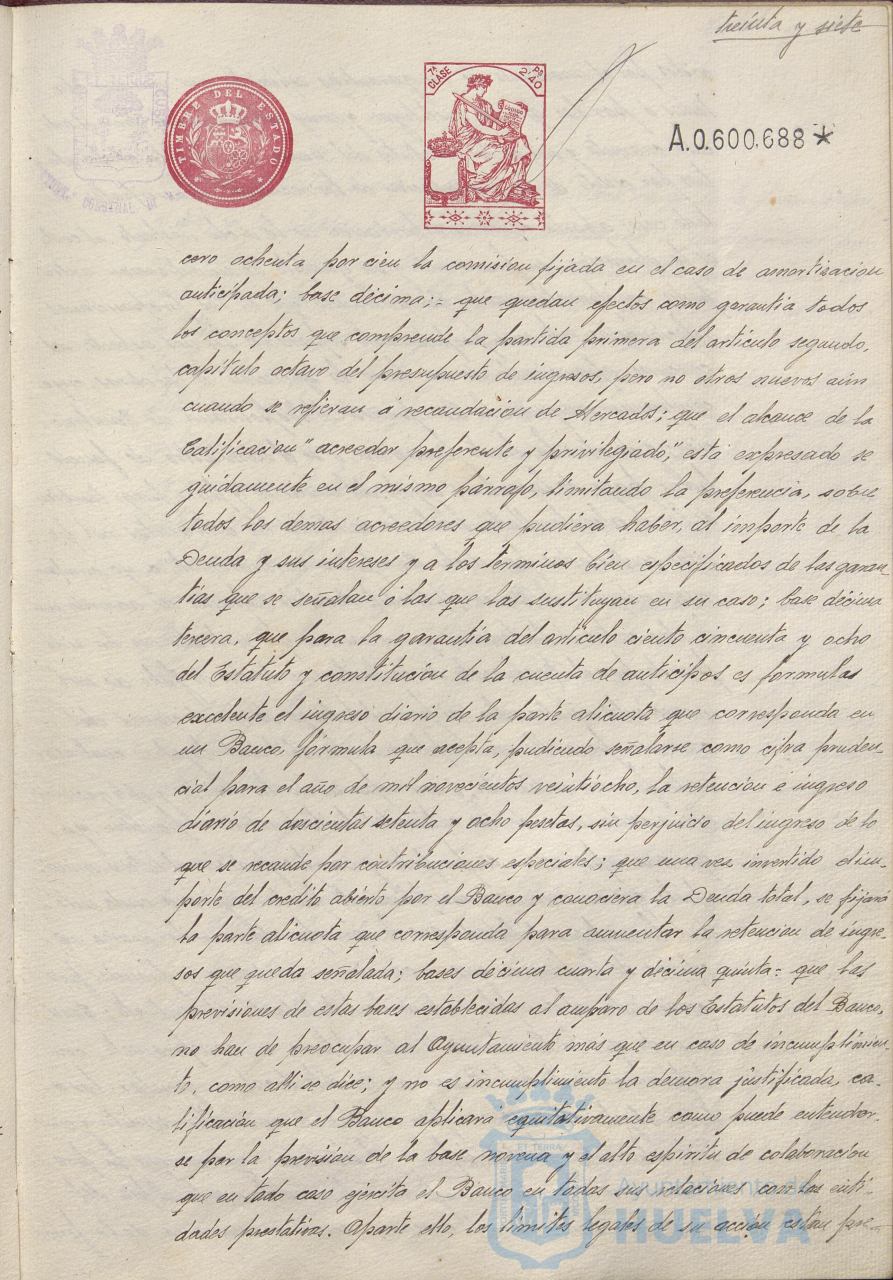 treinta y siete
TIMBRE DEL ESTADO
7ª CLASE
2'40 PS
A.0.600.688*
cero ochenta por cien la comisión fijada en el caso de amortización
anticipada; base décima; = que quedan efectos como garantia todos
los conceptos que comprende la partida primera del artículo segundo,
capitulo octavo del presupuesto de ingresos, pero no otros nuevos aún
cuando se refieran á recaudación de Mercados; que el alcance de la
Calificación "acreedor preferente y privilegiado," está expresado se
guidamente en el mismo párrafo, limitando la preferencia, sobre
todos los demas acreedores que pudiera haber, al importe de la
Deuda y sus intereses y a los terminos bien especificados de las garan
tías que se señalan ó las que las sustituyan en su caso; base décima
tercera, que para la garantia del articulo ciento cincuenta y ocho
del Estatuto y constitución de la cuenta de anticipos es formulas
excelente el ingreso diario de la parte alicuota que corresponda en
un Banco, fórmula que acepta, pudiendo señalarse como cifra pruden-
cial para el año de mil novecientos veintiocho, la retención é ingreso
diario de doscientas setenta y ocho pesetas, sin perjuicio del ingreso de lo
que se recaude por contribuciones especiales; que una vez invertido el im-
porte del credito abierto por el Banco y conociera la Deuda total, se fijará
la parte alicuota que corresponda para aumentar la retencion de ingre-
sos que queda señalada; bases décima cuarta y décima quinta = que las
previsiones de estas bases establecidas al amparo de los Estatutos del Banco,
no han de preocupar al Ayuntamiento más que en caso de incumplimien-
to, como alli se dice; y no es incumplimiento la demora justificada, ca-
lificación que el Banco aplicará equitativamente como puede entender-
se por la previsión de la base novena y el alto espiritu de colaboración
que en todo caso ejercita el Banco en todas sus relaciones con las enti-
dades prestativas. Aparte ello, los límites legales de su acción estan pre-
Ayuntamiento de
HUELVA